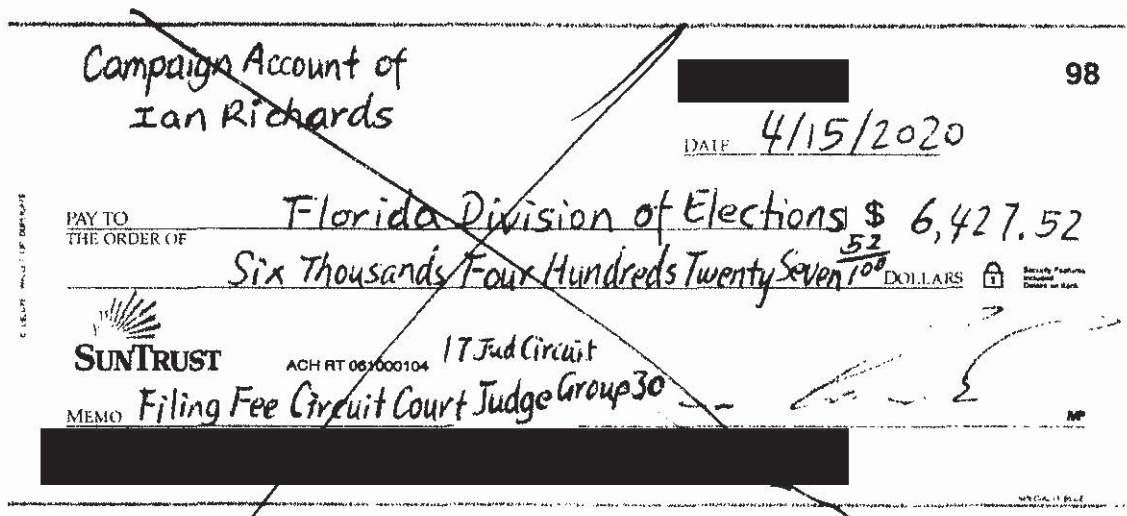 Campaign Account of
Ian Richards
98
DATE 4/15/2020
PAY TO THE ORDER OF Florida Division of Elections $ 6,427.52
Six Thousands Four Hundreds Twenty Seven 52/100 DOLLARS
Security Features Included Details on Back
SUNTRUST
ACH RT 061000104
17 Jud Circuit
MEMO Filing Fee Circuit Court Judge Group 30
MP